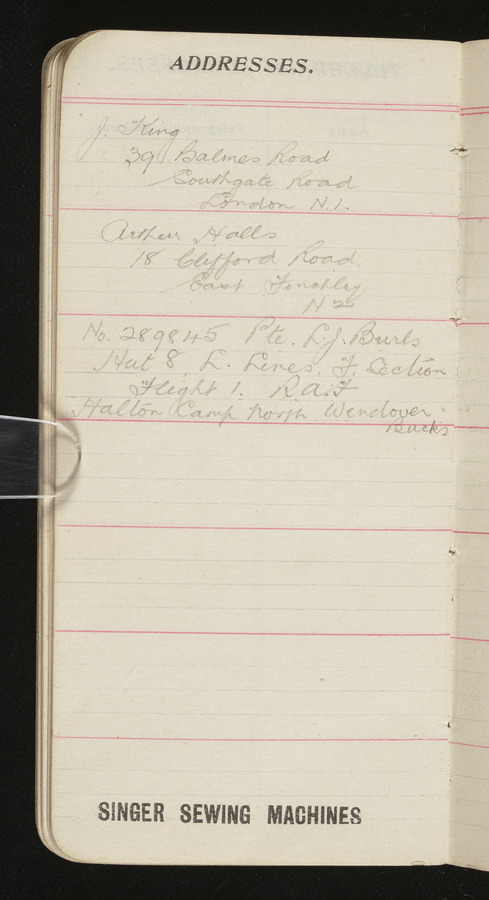 ADDRESSES.
J. King
39 Balmes Road
Southgate Road
London N.1.
Arthur Halls
18 Clifford Road.
East Finchley
N 2
No. 289845 Pte. L.J. Burls
Hut 8, L. Lines, F. Section
Flight 1. R.A.F
Halton Camp North Wendover.
Bucks
SINGER SEWING MACHINES